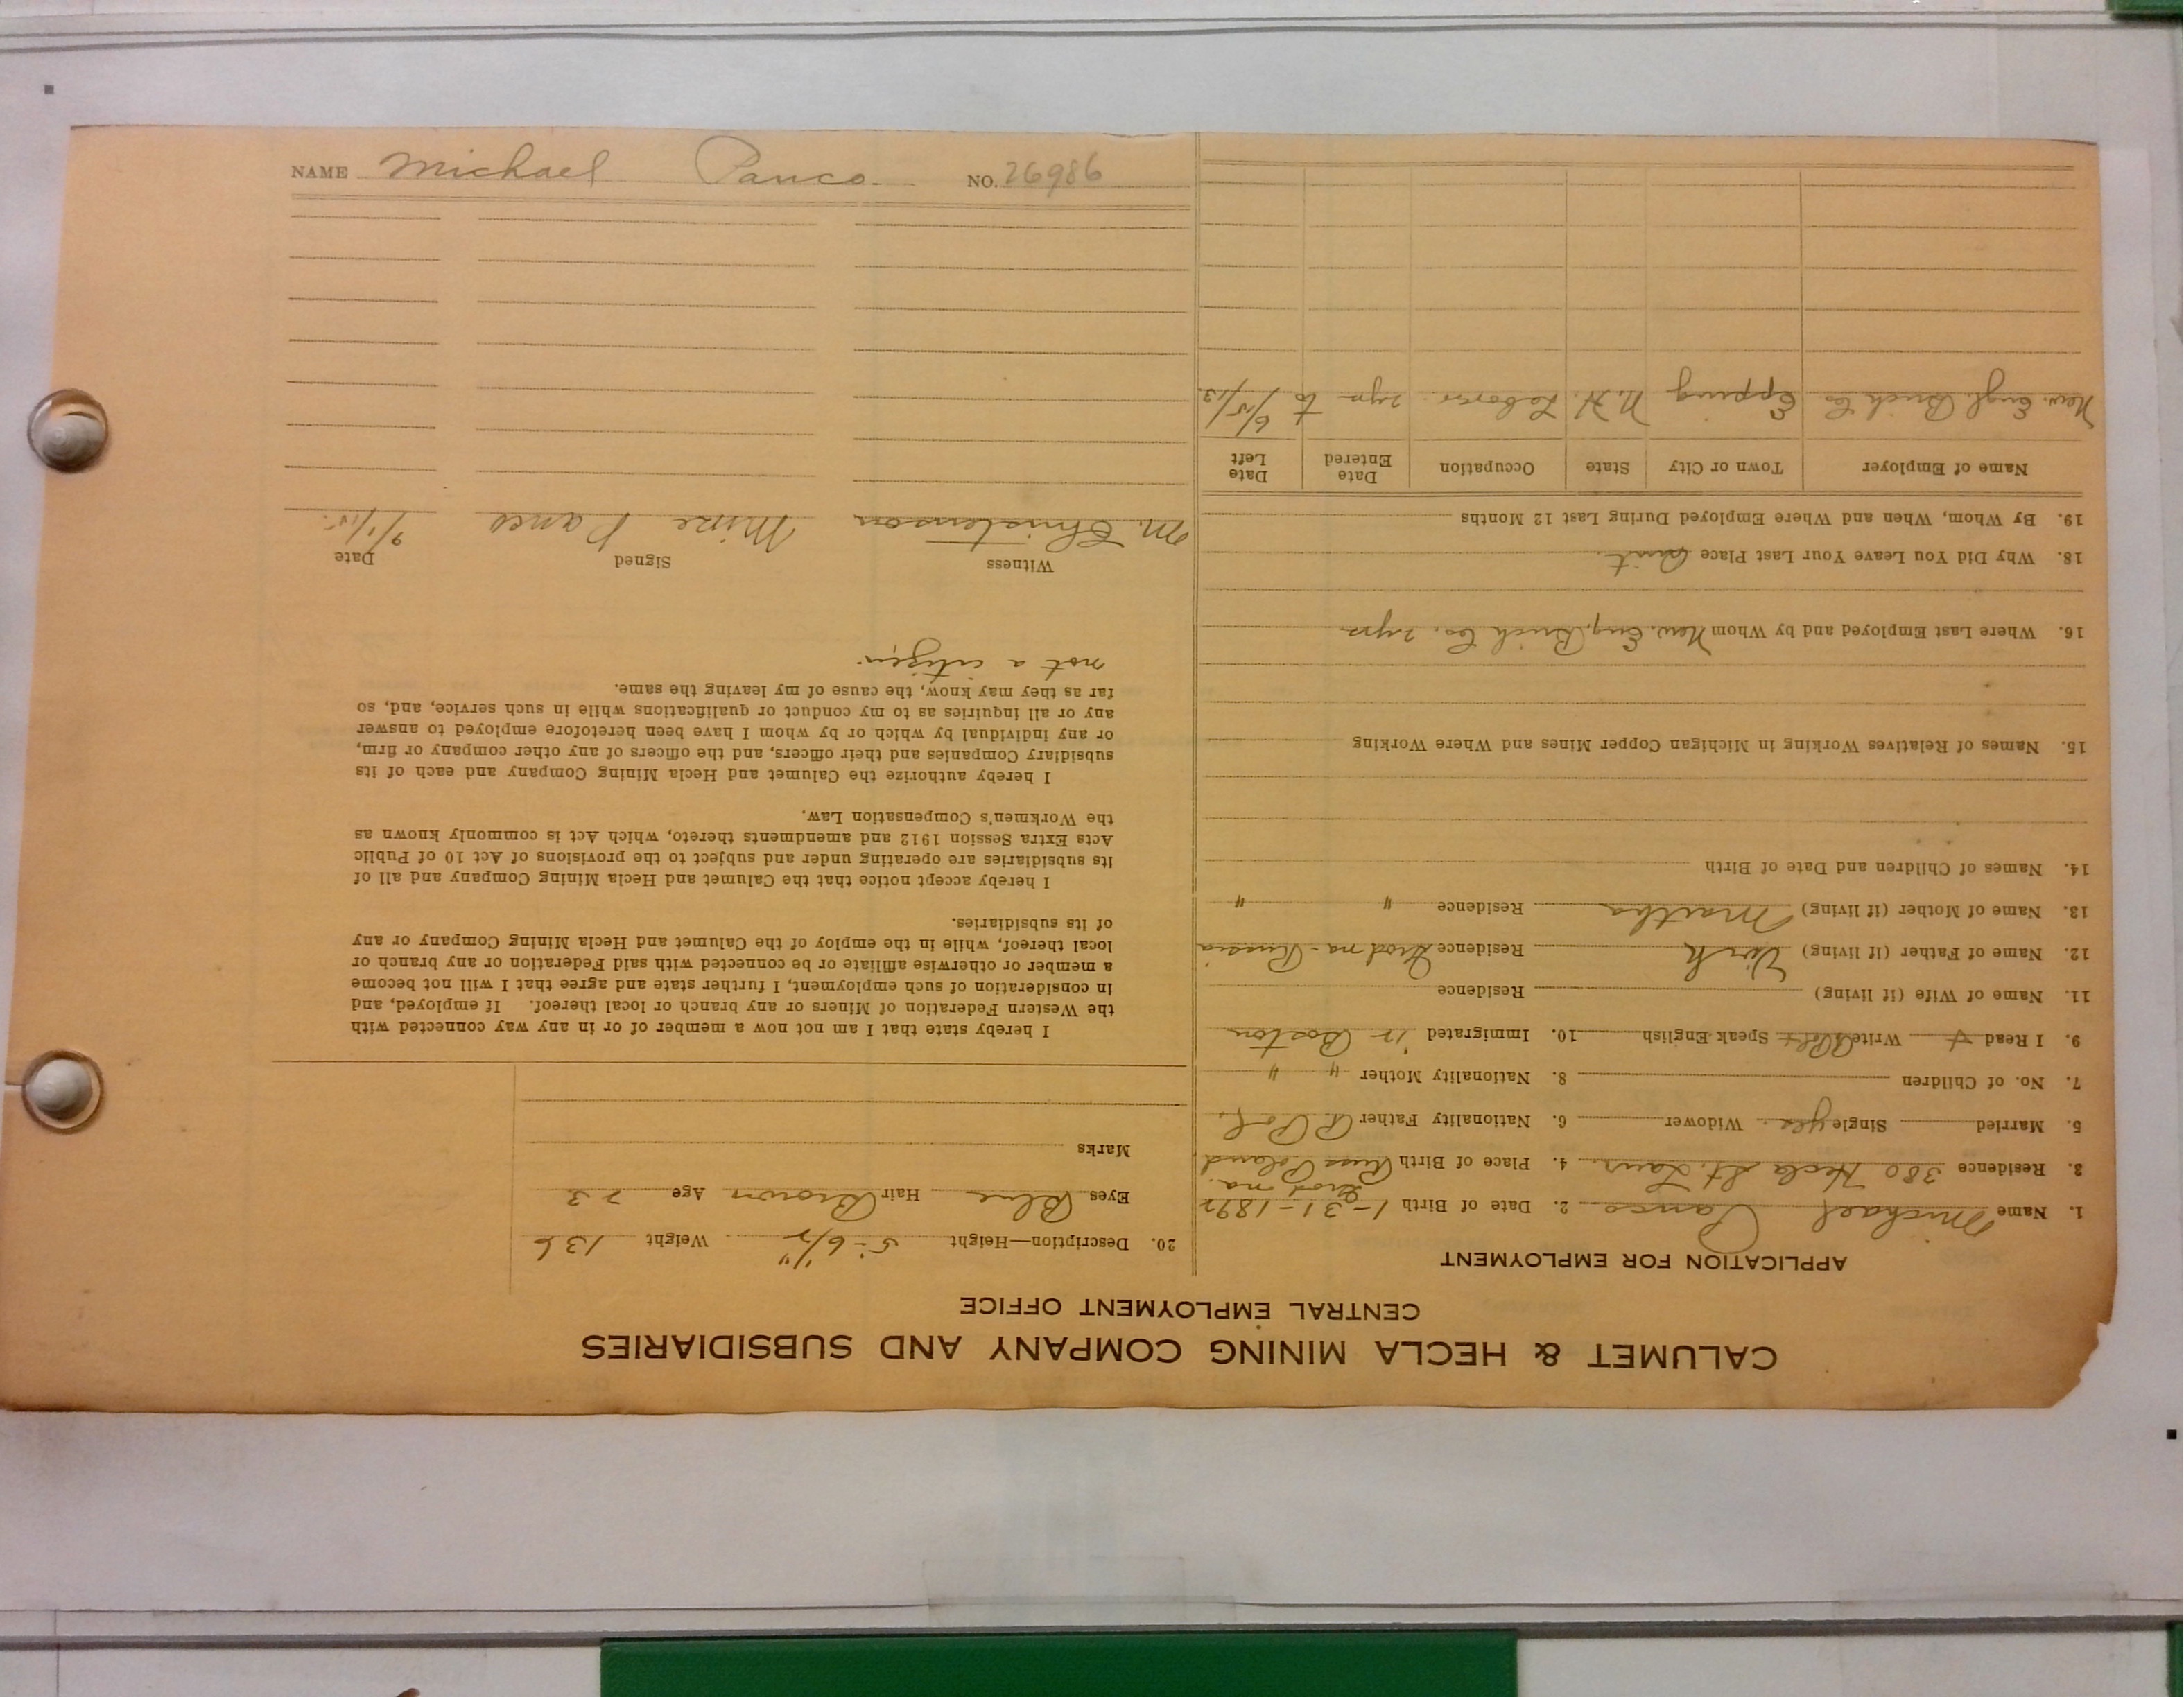 CALUMET & HECLA MINING COMPANY AND SUBSIDIARIES
CENTRAL EMPLOYMENT OFFICE
APPLICATION FOR EMPLOYMENT
1. Name Michael Panco 2. Date of Birth 1-31-1892
Grodna.
3. Residence 380 Hecla St. Laur. 4. Place of Birth Russ Poland
5. Married Single yes Widower 6. Nationality Father R Pol.
7. No. of Children 8. Nationality Mother " "
9. I Read + Write Speak English 10. Immigrated '12 Boston
11. Name of Wife (if living) Residence
12. Name of Father (if living) Residence Grodna - Russia
13. Name of Mother (if living) Martha Residence " "
14. Names of Children and Date of Birth
15. Names of Relatives Working in Michigan Copper Mines and Where Working
16. Where Last Employed and by Whom New. Eng. Brick Co. 2 yrs.
18. Why Did You Leave Your Last Place Quit
19. By Whom, When and Where Employed During Last 12 Months
Name of Employer Town or City State Occupation Date Entered Date Left
New. Engl. Brick Co Epping N.H. Laborer 2 yrs to 6/15/13
20. Description—Height 5-6 1/2" Weight 136
Eyes Blue Hair Brown Age 23
Marks
I hereby state that I am not now a member of or in any way connected with
the Western Federation of Miners or any branch or local thereof. If employed, and
in consideration of such employment, I further state and agree that I will not become
a member or otherwise affiliate or be connected with said Federation or any branch or
local thereof, while in the employ of the Calumet and Hecla Mining Company or any
of its subsidiaries.
I hereby accept notice that the Calumet and Hecla Mining Company and all of
its subsidiaries are operating under and subject to the provisions of Act 10 of Public
Acts Extra Session 1912 and amendments thereto, which Act is commonly known as
the Workmen's Compensation Law.
I hereby authorize the Calumet and Hecla Mining Company and each of its
subsidiary Companies and their officers, and the officers of any other company or firm,
or any individual by which or by whom I have been heretofore employed to answer
any or all inquiries as to my conduct or qualifications while in such service, and, so
far as they may know, the cause of my leaving the same.
not a citizen.
Witness Signed Date
M. Christenson Mize Panco 9/1/15.
NAME Michael Panco. NO. 26986